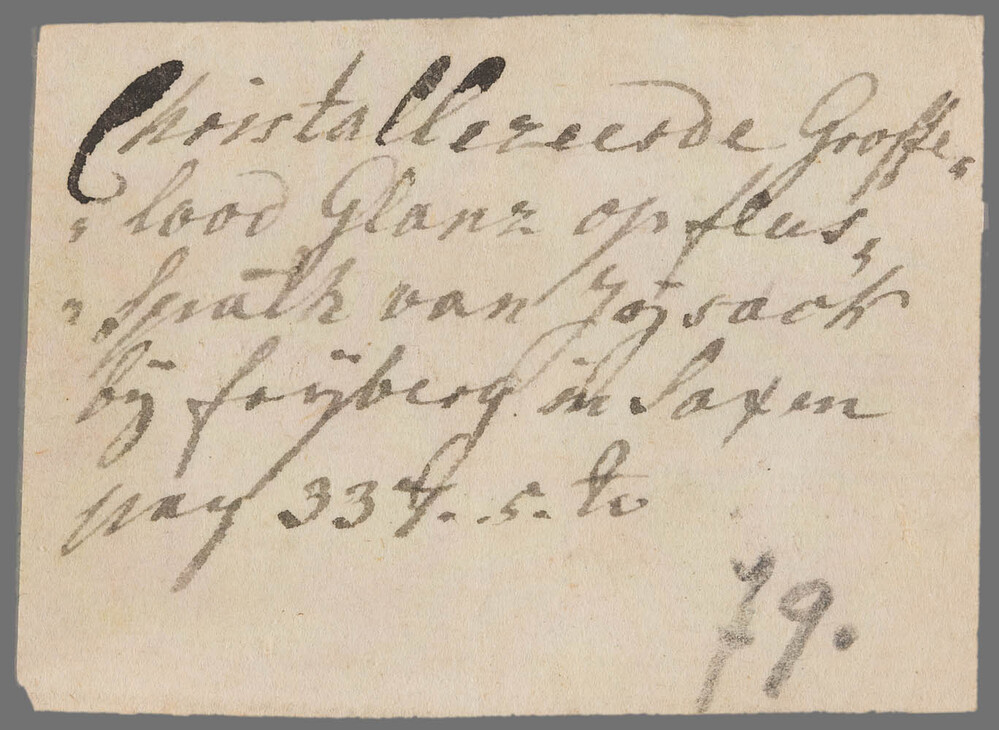 Christallezeerde Groffe„
„lood Glanz op flus„
„Spath van Zÿsack
bÿ frÿberg in Saxen
pag 337. 5. tr
79.